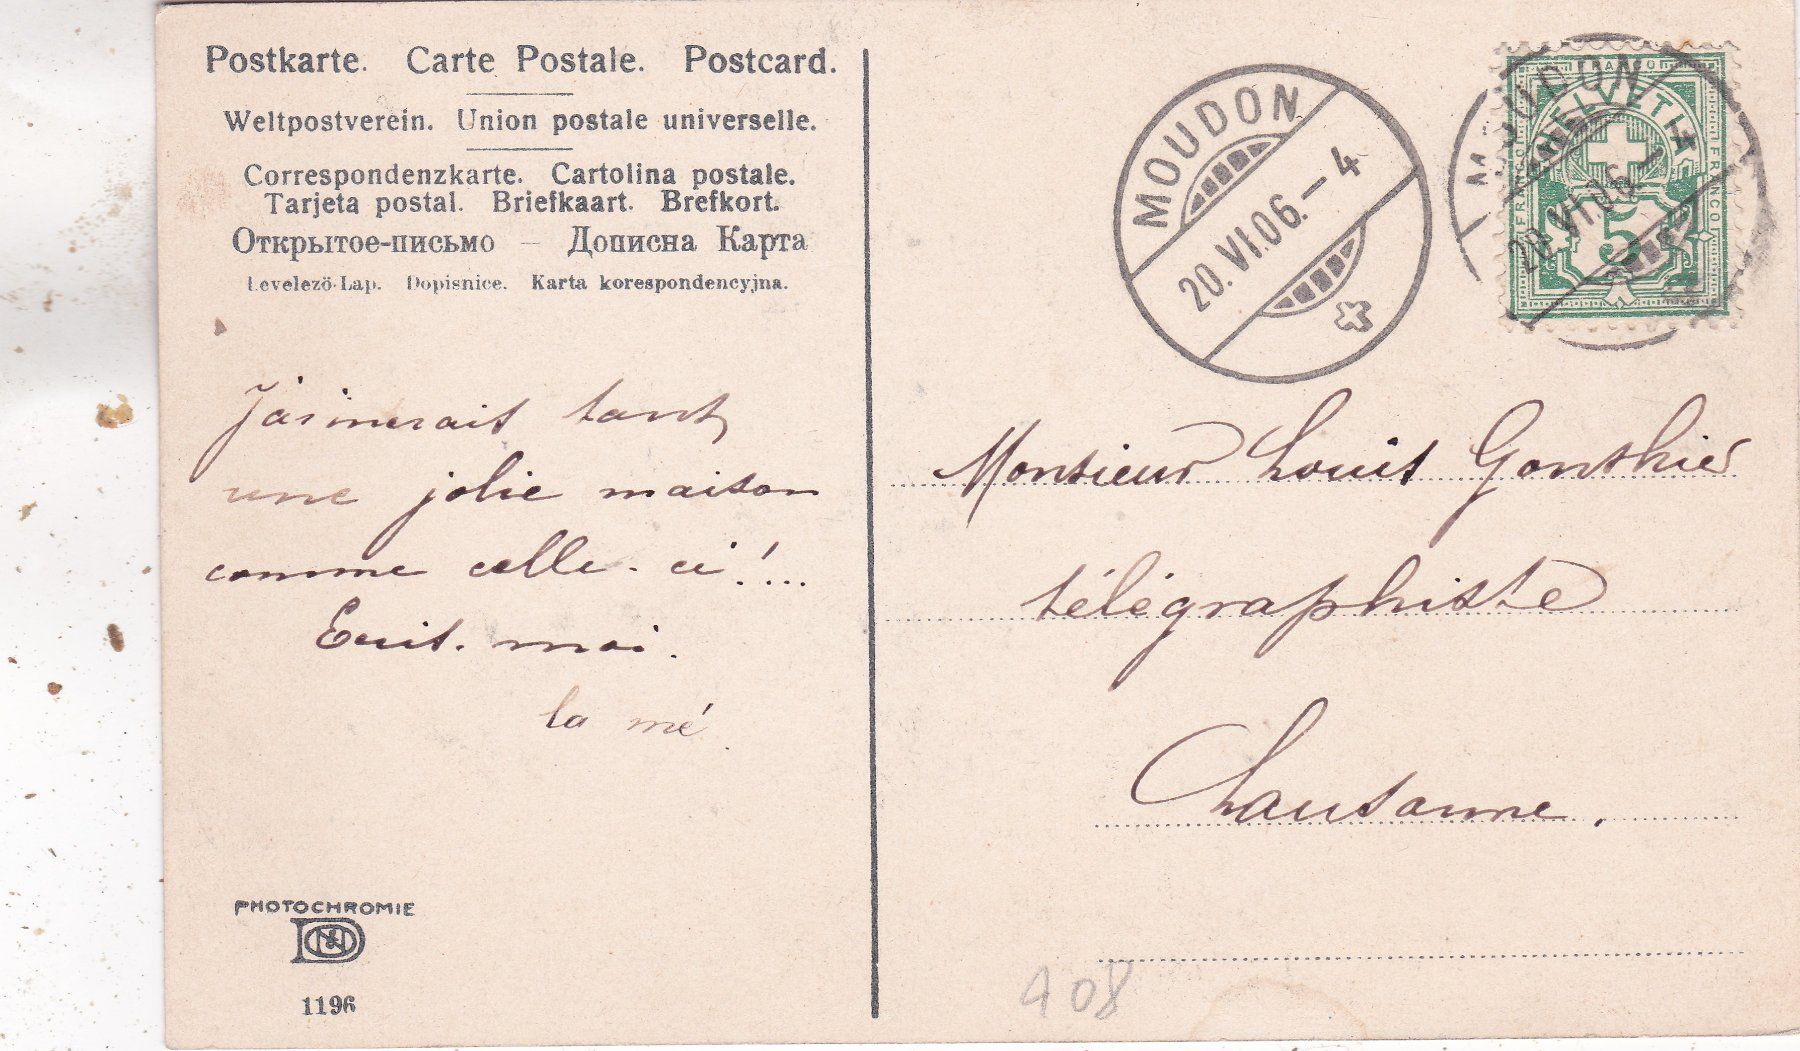 Postkarte. Carte Postale. Postcard.
Weltpostverein. Union postale universelle.
Correspondenzkarte. Cartolina postale.
Tarjeta postal. Briefkaart. Brefkort.
Открытое-письмо – Дописна Карта
Levelező-Lap. Dopisnice. Karta korespondencyjna.
J'aimerait tant
une jolie maison
comme celle-ci!...
Ecrit-moi.
la mé.
PHOTOCHROMIE
1196
MOUDON
20.VI.06.–4
MOUDON
20.VI.06.–4
FRANCO
HELVETIA
FRANCO
FRANCO
5
Monsieur Louis Gonthier
télégraphiste
Lausanne.
908